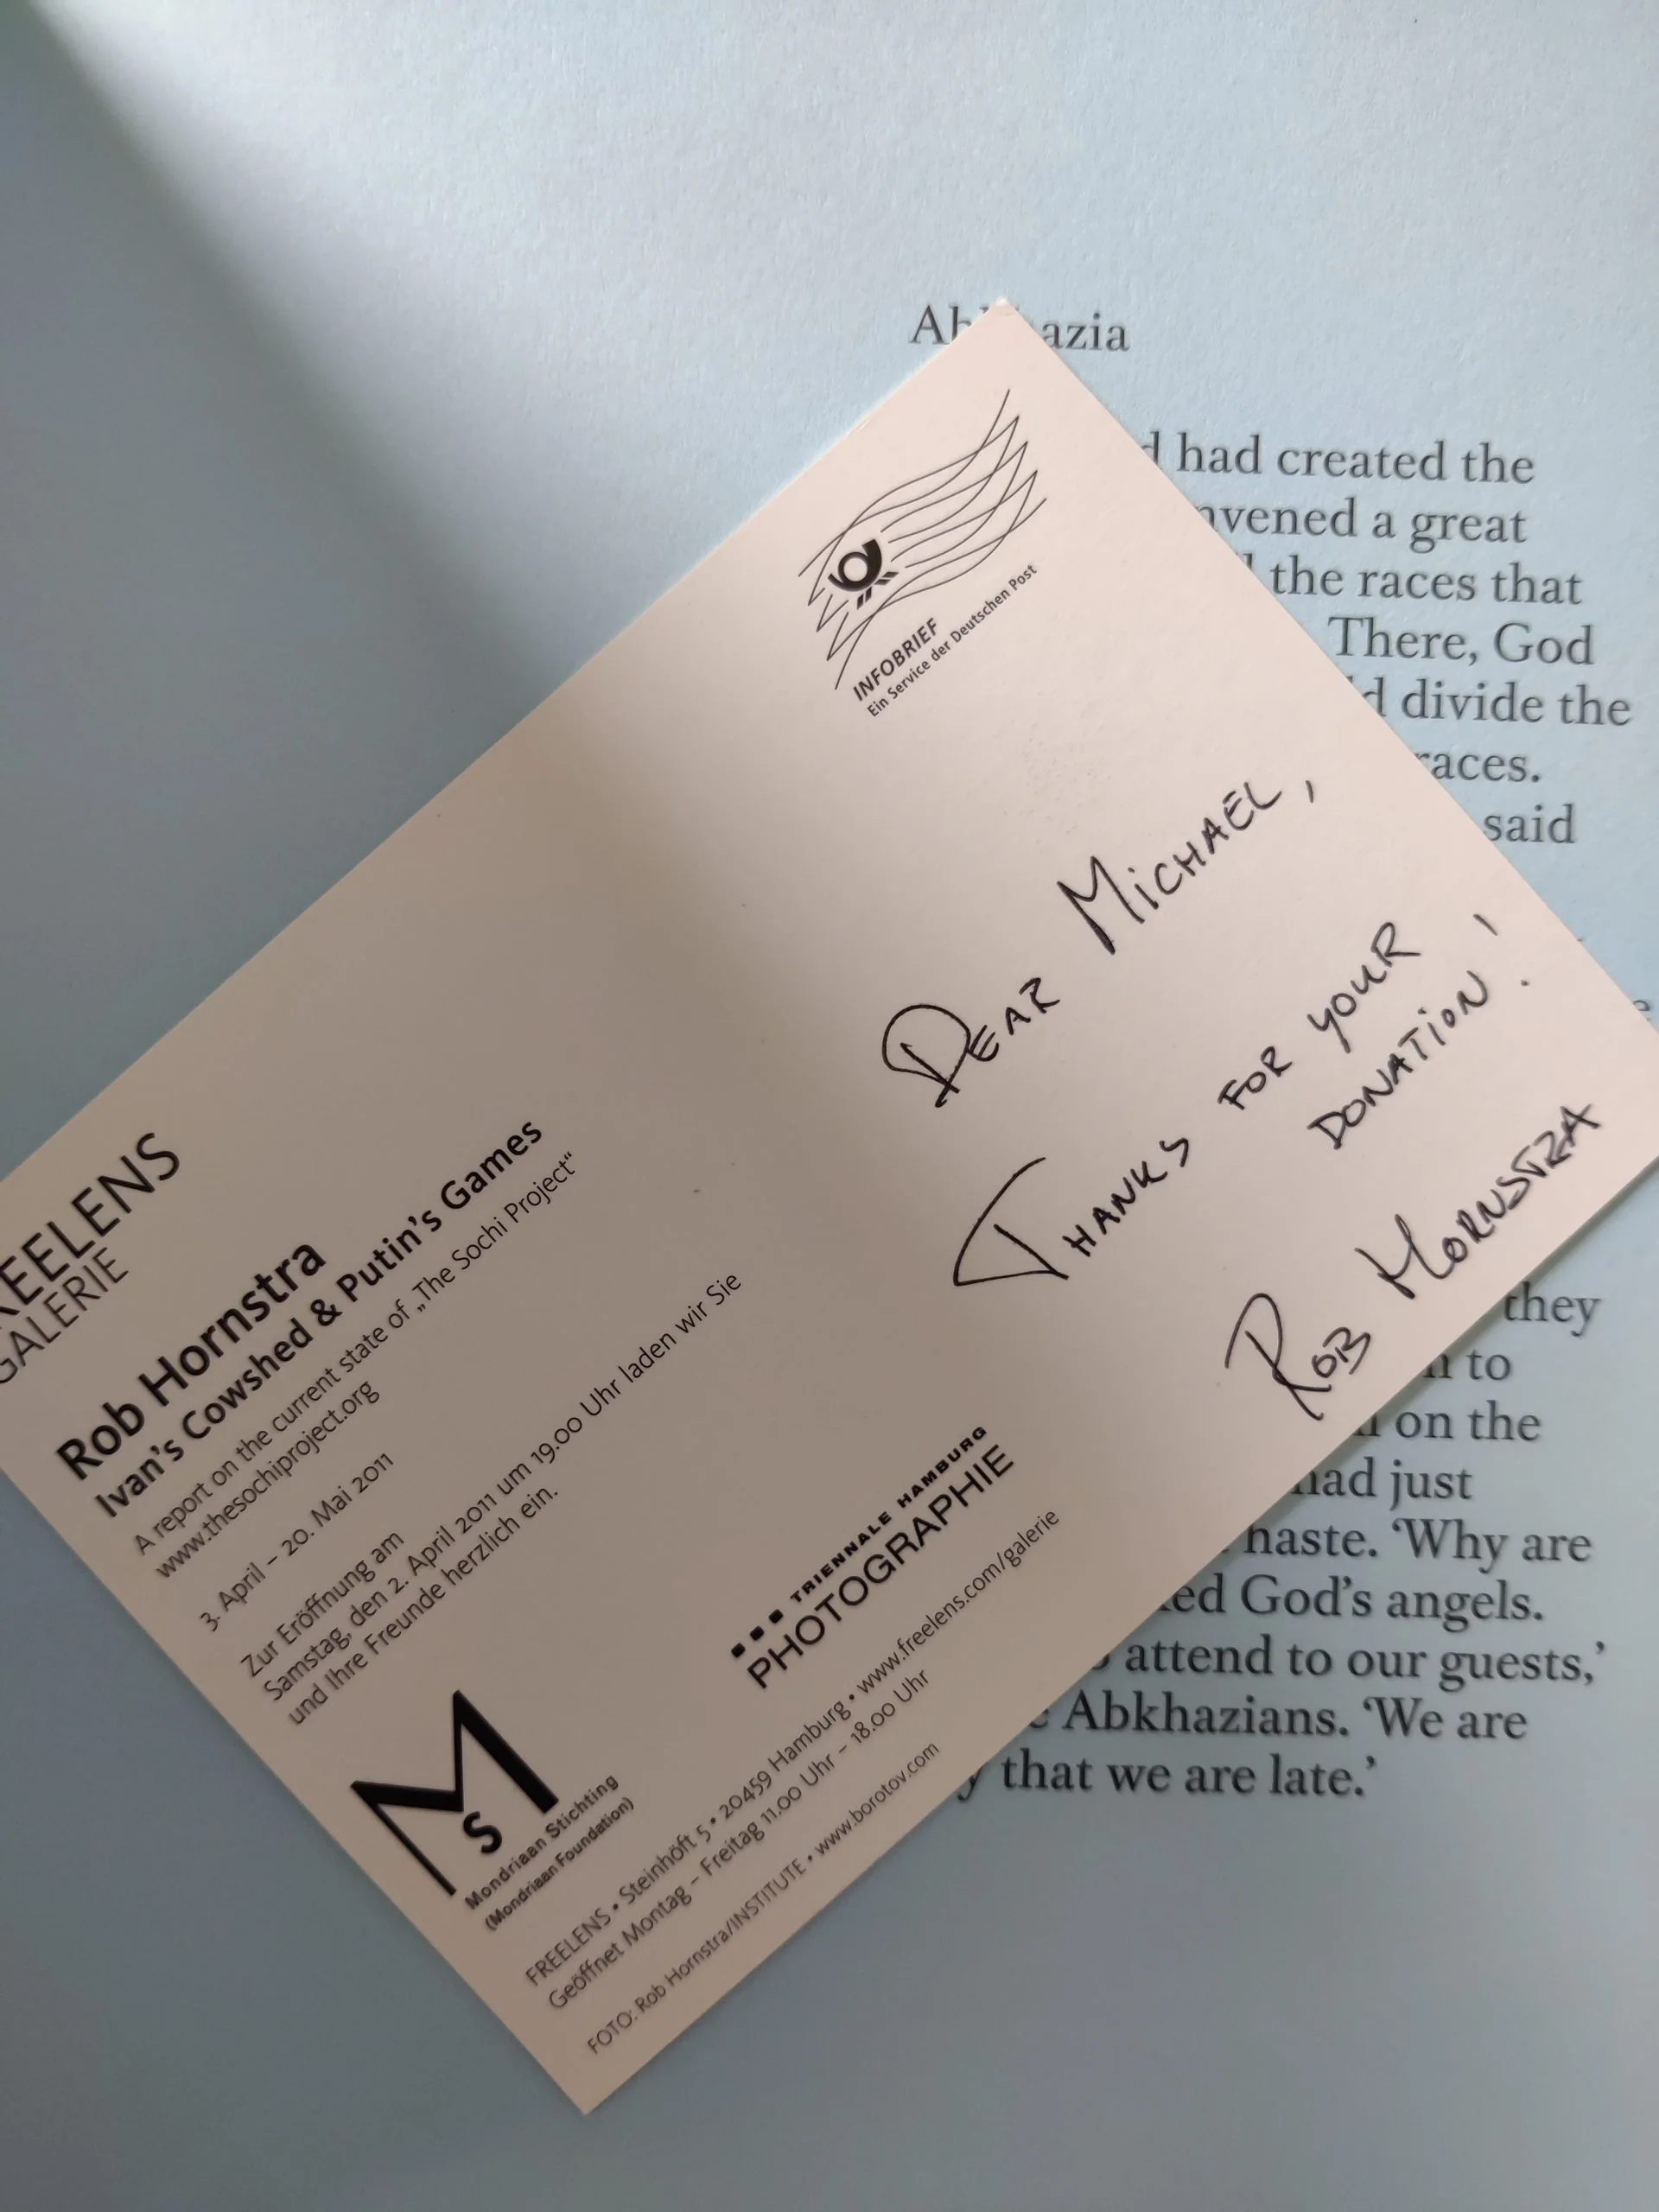 azia
had created the
a great
the races that
There, God
divide the
said
INFOBRIEF
Ein Service der Deutschen Post
DEAR MICHAEL,
THANKS FOR YOUR
DONATION!
ROB HORNSTRA
GALERIE
Rob Hornstra
Ivan's Cowshed & Putin's Games
A report on the current state of „The Sochi Project“
www.thesochiproject.org
3. April – 20. Mai 2011
Zur Eröffnung am
Samstag, den 2. April 2011 um 19.00 Uhr laden wir Sie
und Ihre Freunde herzlich ein.
Ms
Mondriaan Stichting
(Mondriaan Foundation)
TRIENNALE HAMBURG
PHOTOGRAPHIE
FREELENS • Steinhöft 5 • 20459 Hamburg • www.freelens.com/galerie
Geöffnet Montag – Freitag 11.00 Uhr – 18.00 Uhr
FOTO: Rob Hornstra/INSTITUTE • www.borotov.com
they
to
on the
just
haste. ‘Why are
God’s angels.
attend to our guests,’
Abkhazians. ‘We are
that we are late.’